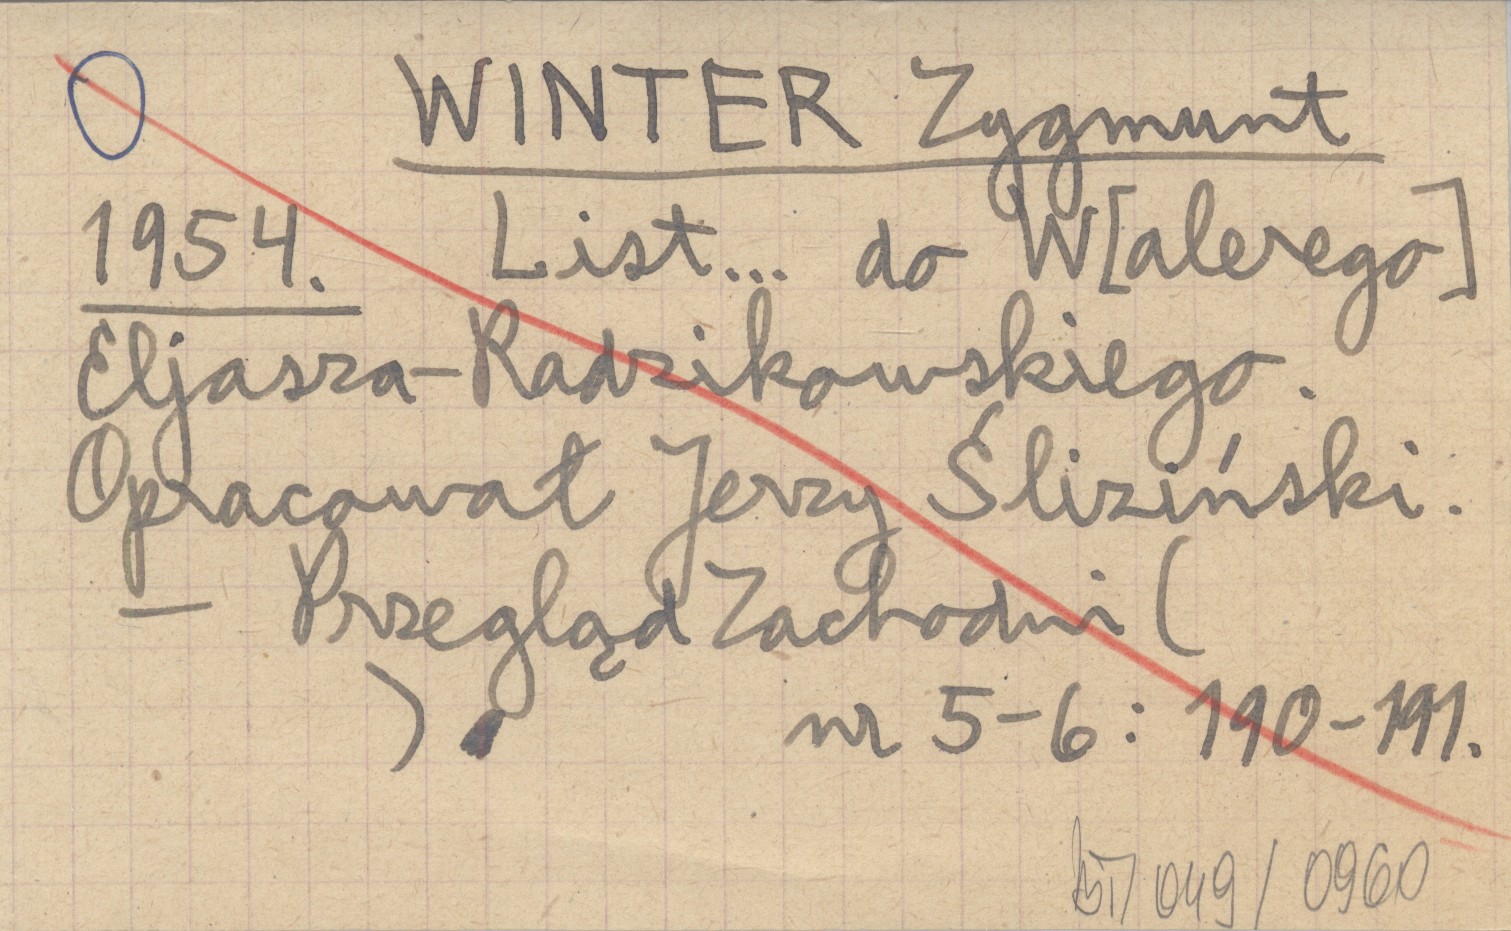 WINTER Zygmunt
1954. List... do W[alerego]
Eljasza-Radzikowskiego.
Opracował Jerzy Śliziński.
— Przegląd Zachodni (
) nr 5-6: 190-191.
049/0960